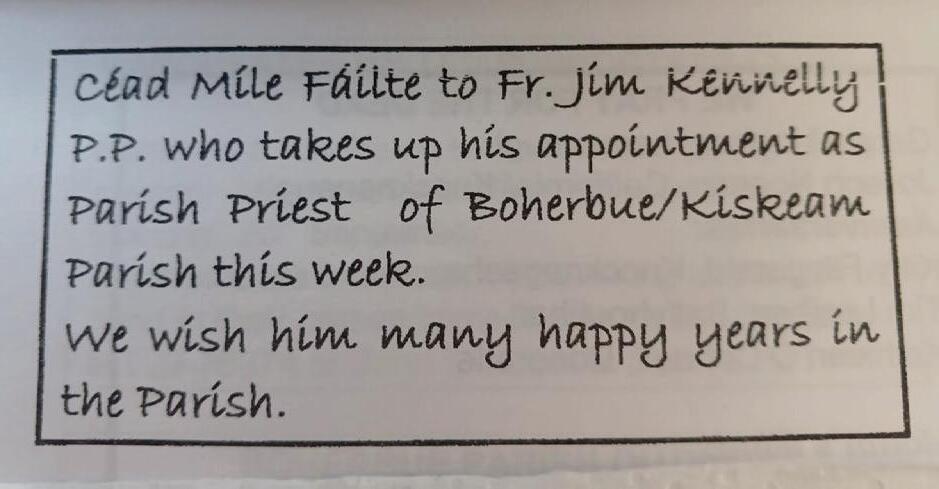 Céad Míle Fáilte to Fr. Jim Kennelly
P.P. who takes up his appointment as
Parish Priest of Boherbue/Kiskeam
Parish this week.
We wish him many happy years in
the Parish.